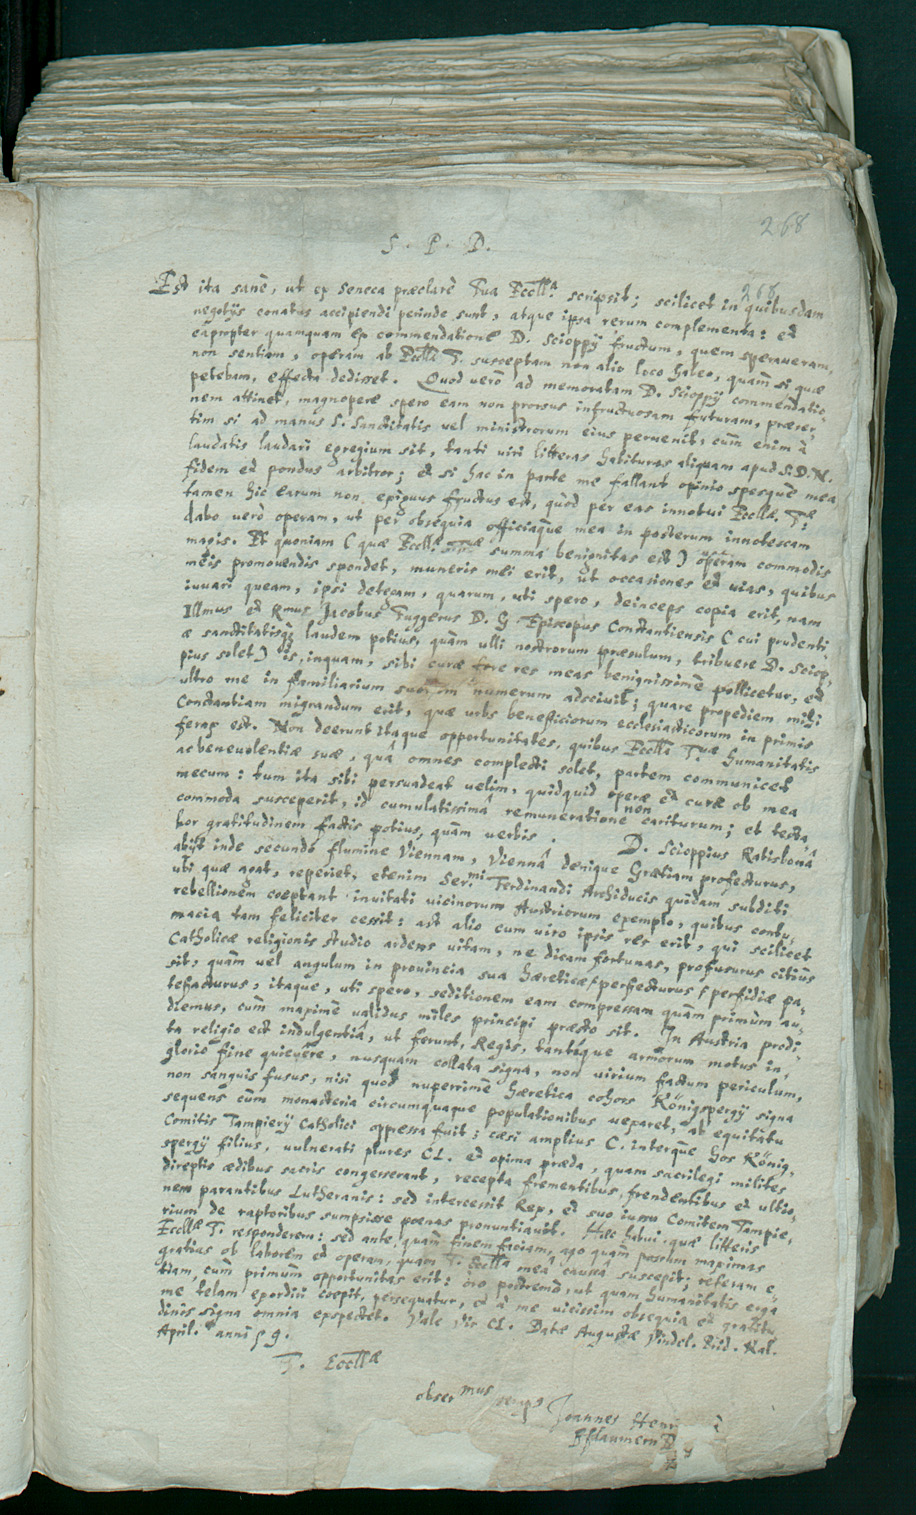 268
S. P. D.
Est ita sanè, ut ex Seneca præclarè Tua Eccell.ª scripsit; scilicet in quibusdam
268
negotijs conatus accipiendi perinde sunt, atque ipsa rerum complementa: et
eapropter quamquam ex commendatione D. Scioppij fructum, quem speraueram,
non sentiam, operam ab Eccllâ T. susceptam non alio loco habeo, quàm si quæ
petebam, effecta dedisset. Quod uerò ad memoratam D. Scioppij commendatio
nem attinet, magnoperè spero eam non prorsus infructuosam futuram, præser-
tim si ad manus S. Sanctitatis uel ministrorum eius peruenit, cùm enim à
laudatis laudari egregium sit, tanti uiri litteras habituras aliquam apud S. D. N.
fidem et pondus arbitror; et si hac in parte me fallant opinio spesquè mea
tamen hic earum non exiguus fructus est, quòd per eas innotui Eccllæ. Tæ.
dabo uerò operam, ut per obsequia officiaque mea in posterum innotescam
magis. Et quoniam (quæ Eccllæ. Tuæ summa benignitas est) operam commodis
meis promouendis spondet, muneris mei erit, ut occasiones et uias, quibus
iuuari queam, ipsi detegam, quarum, uti spero, deinceps copia erit, nam
Illmus et Rmus Jacobus Fuggerus D. G. Episcopus Constantiensis (cui prudenti
æ sanctitatisq; laudem potius, quàm ulli nostrorum præsulum, tribuere D. Sciop-
pius solet) is, inquam, sibi curæ fore res meas benignissimè pollicetur, et
ultro me in familiarium suorum numerum adsciuit; quare propediem mihi
Constantiam migrandum erit, quæ urbs beneficiorum ecclesiasticorum in primis
ferax est. Non deerunt itaque opportunitates, quibus Ecclla Tuæ humanitatis
ac beneuolentiæ suæ, quâ omnes complecti solet, partem communicet
mecum: tum ita sibi persuadeat uelim, quidquid operæ et curæ ob mea
commoda susceperit, id cumulatissimâ remuneratione non cariturum; et testa
bor gratitudinem factis potius, quàm uerbis. D. Scioppius Ratisbonâ
abijt inde secundo flumine Viennam, Viennâ denique Grætiam profecturus,
uti quæ agat, reperiet, etenim Ser.mi Ferdinandi Archiducis quidam subditi
rebellionem coeptant inuitati uicinorum Austriorum exemplo, quibus contu-
macia tam feliciter cessit: ast alio cum uiro ipsis res erit, qui scilicet
Catholicæ religionis studio ardens uitam, ne dicam fortunas, profusurus citiùs
sit, quàm uel angulum in prouincia sua hæreticæ perfidiæ pa-
tefacturus, itaque, uti spero, seditionem eam compressam quàm primùm au-
diemus, cùm maximè ualidus miles principi præsto sit. In Austria prodi-
ta religio est indulgentiâ, ut ferunt, Regis, tantique armorum motus in-
glorio fine quieuêre, nusquam collata signa, non uirium factum periculum,
non sanguis fusus, nisi quod nuperrimè hæretica cohors Königspergij signa
sequens cùm monasteria circumquaque populationibus uexaret, ab equitatu
Comitis Tampierij Catholici oppressa fuit; cæsi amplius C. interque hos König-
spergij filius, uulnerati plures CL. et opima præda, quam sacrilegi milites
direptis ædibus sacris congesserant, recepta frementibus, frendentibus et ultio-
nem parantibus Lutheranis: sed intercessit Rex, et suo iussu Comitem Tampie-
rium de raptoribus sumpsisse poenas pronuntiauit. Hæc habui quæ litteris
Eccllæ T. responderem: sed ante, quàm finem faciam, ago quàm possum maximas
gratias ob laborem et operam, quam T. Eccllа meâ causâ suscepit; referam e-
tiam, cùm primùm opportunitas erit: oro postremò, ut quam humanitatis erga
me telam exordiri coepit, persequatur, et à me uicissim obsequia et gratitu-
dinis signa omnia exspectet. Vale Vir Cl. Datæ Augustæ Vindel. Prid. Kal.
April. anni 59.
T. Eccllæ
obser mus
Joannes Hen
Pflaumern